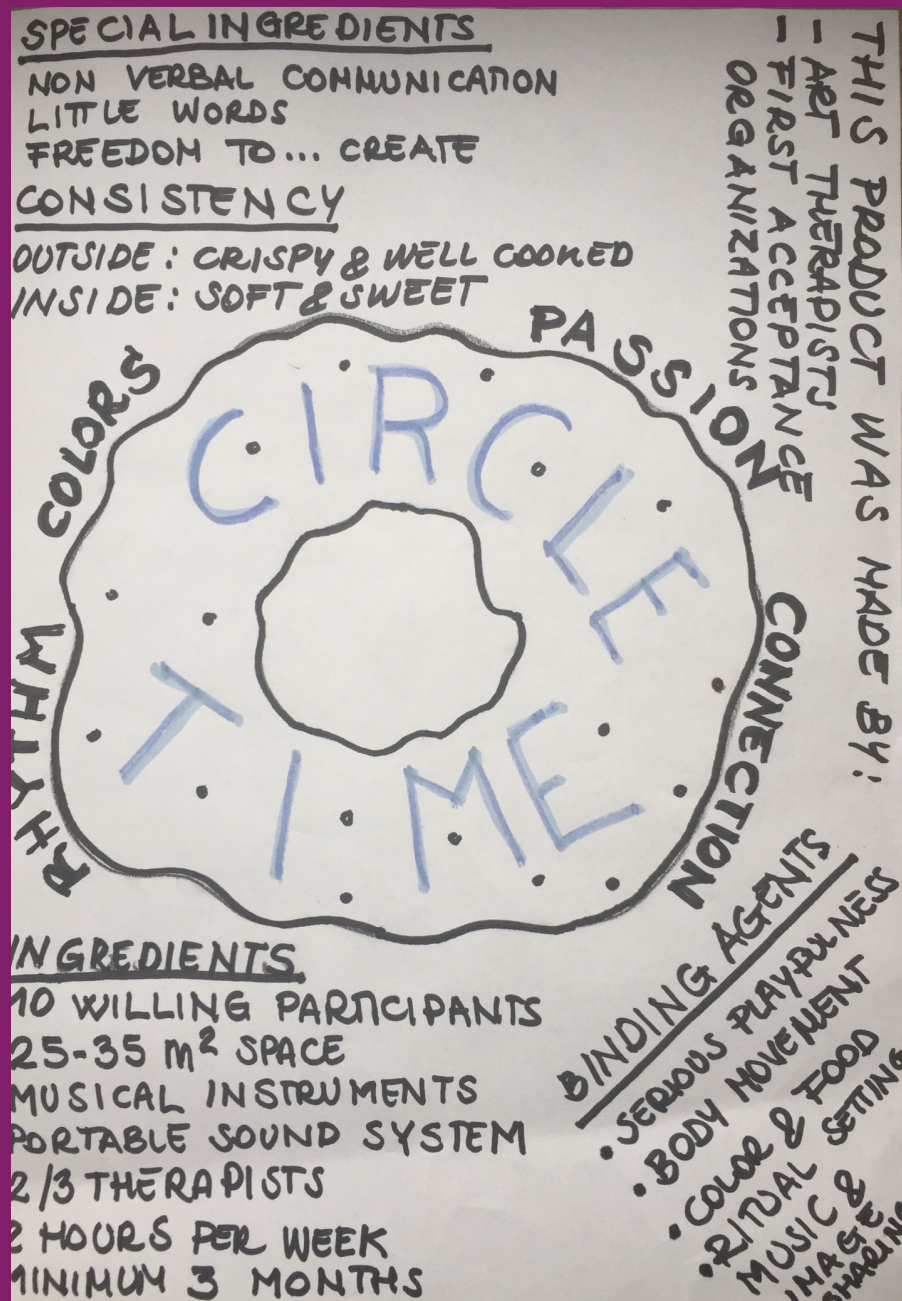 SPECIAL INGREDIENTS
NON VERBAL COMMUNICATION
LITTLE WORDS
FREEDOM TO... CREATE
CONSISTENCY
OUTSIDE: CRISPY & WELL COOKED
INSIDE: SOFT & SWEET
THIS PRODUCT WAS MADE BY:
- ART THERAPISTS
- FIRST ACCEPTANCE
ORGANIZATIONS
COLORS
PASSION
CONNECTION
RHYTHM
CIRCLE
TIME
INGREDIENTS
10 WILLING PARTICIPANTS
25-35 m² SPACE
MUSICAL INSTRUMENTS
PORTABLE SOUND SYSTEM
2/3 THERAPISTS
2 HOURS PER WEEK
MINIMUM 3 MONTHS
BINDING AGENTS
• SERIOUS PLAYFULNESS
• BODY MOVEMENT
• COLOR & FOOD
• RITUAL SETTING
MUSIC &
IMAGE
SHARING